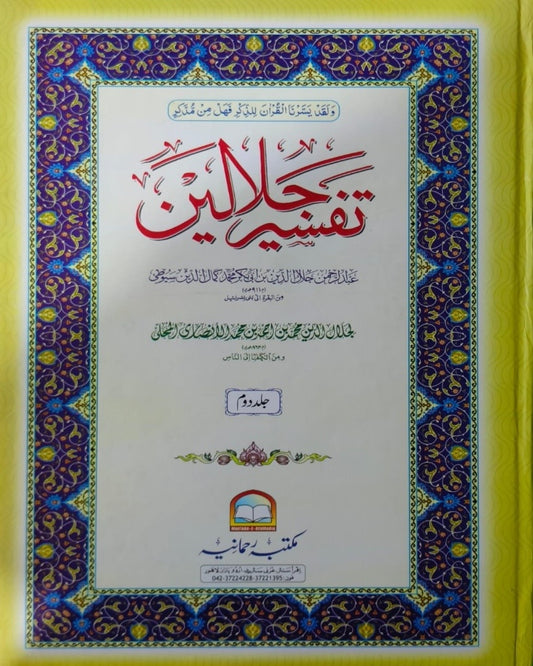 وَلَقَدْ يَسَّرْنَا الْقُرْاٰنَ لِلذِّكْرِ فَهَلْ مِنْ مُّدَّكِرٍ
تفسير جلالين
عبد الرحمن جلال الدين بن ابی بکر محمد کمال الدین سیوطی
(م ٩١١ ھ)
من البقرة الى بنی اسرائیل
جلال الدين محمد بن احمد بن محمد الأنصاري المحلي
(م ٨٦٤ ھ)
و من الكهف الى الناس
جلد دوم
Maktaba-e-Rehmania
مکتبہ رحمانیہ
اِقرأ سنٹر غزنی سٹریٹ اردو بازار لاہور
فون: 042-37224228-37221395